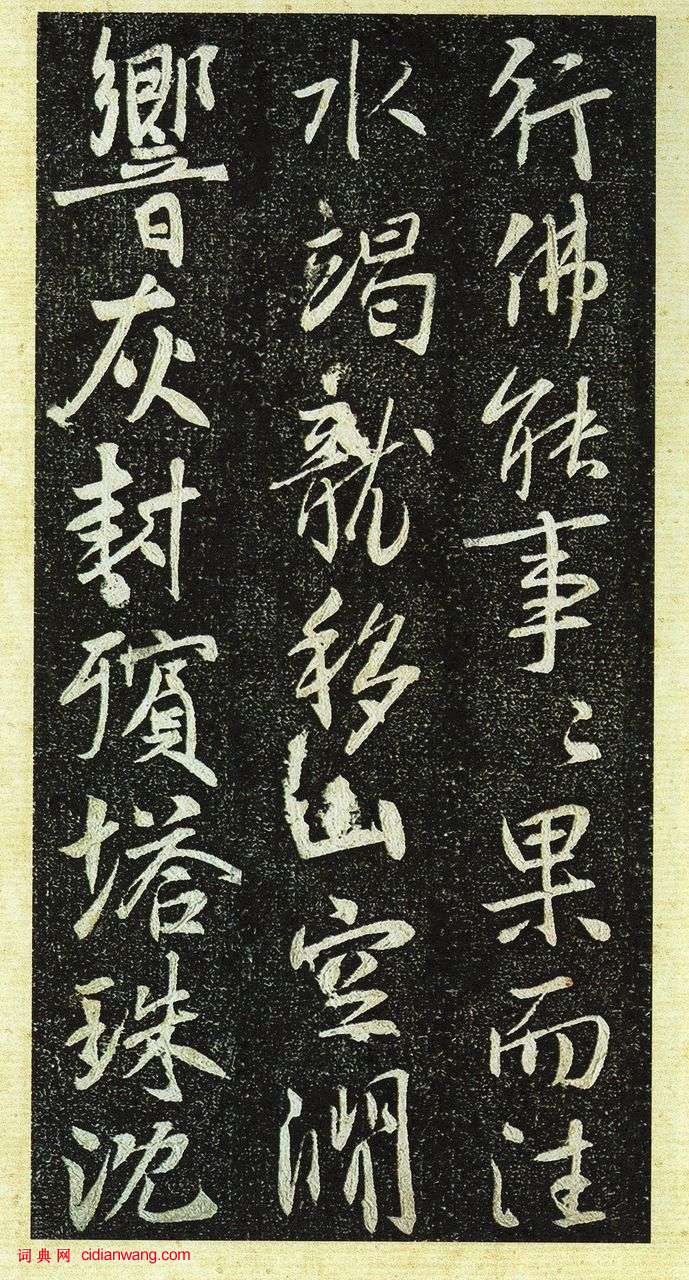 行佛能事〻果而往
水竭龍移山空澗
響灰封殯塔珠沈
词典网 cidianwang.com